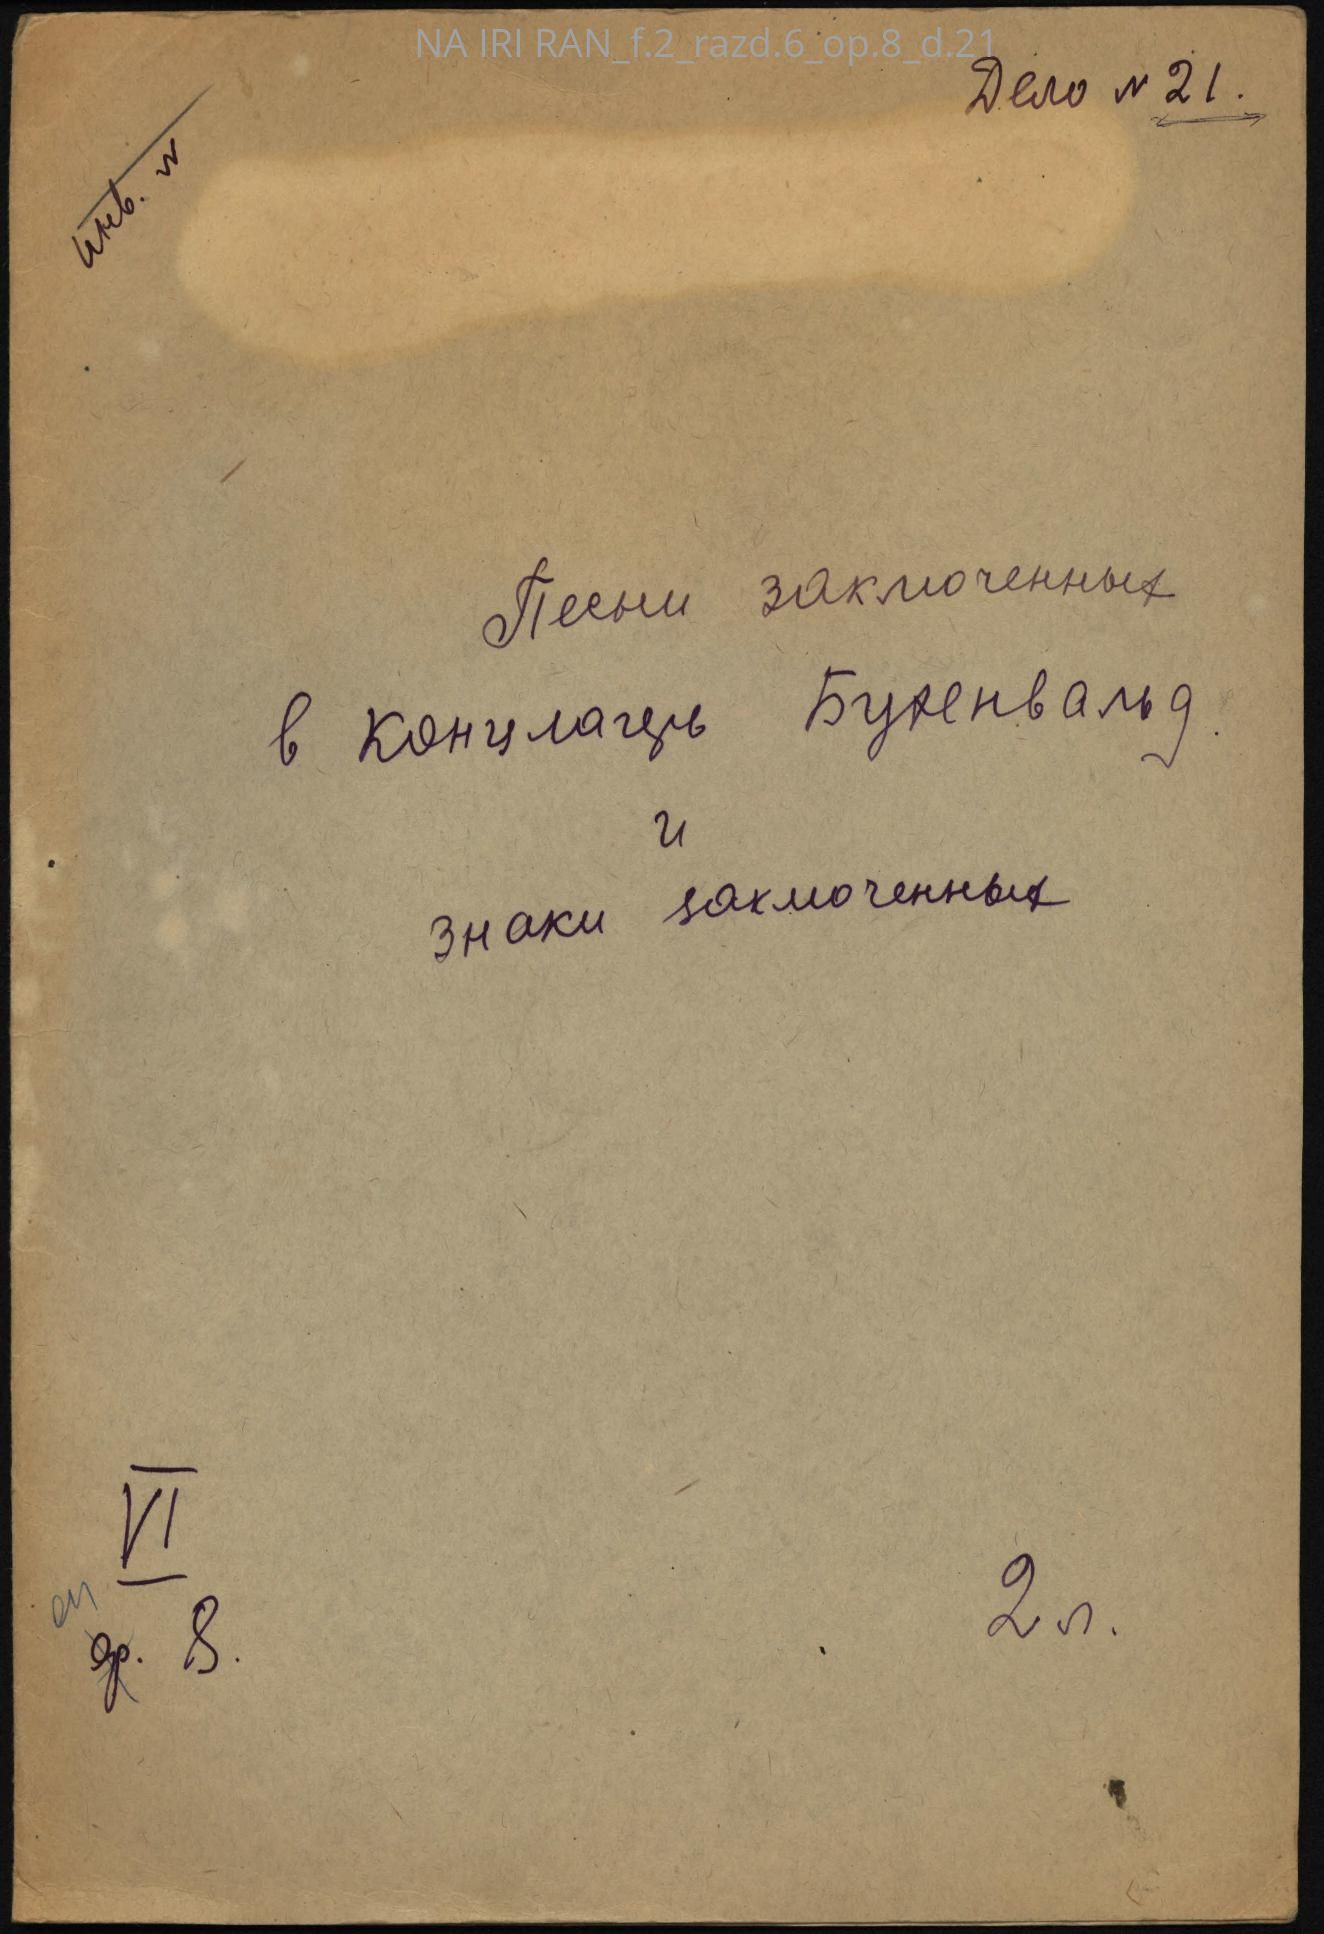 NA IRI RAN_f.2_razd.6_op.8_d.21
Дело N 21.
инв. N
Песни заключенных
в концлагерь Бухенвальд.
и
знаки заключенных
VI
оп
ф. 8.
2 л.